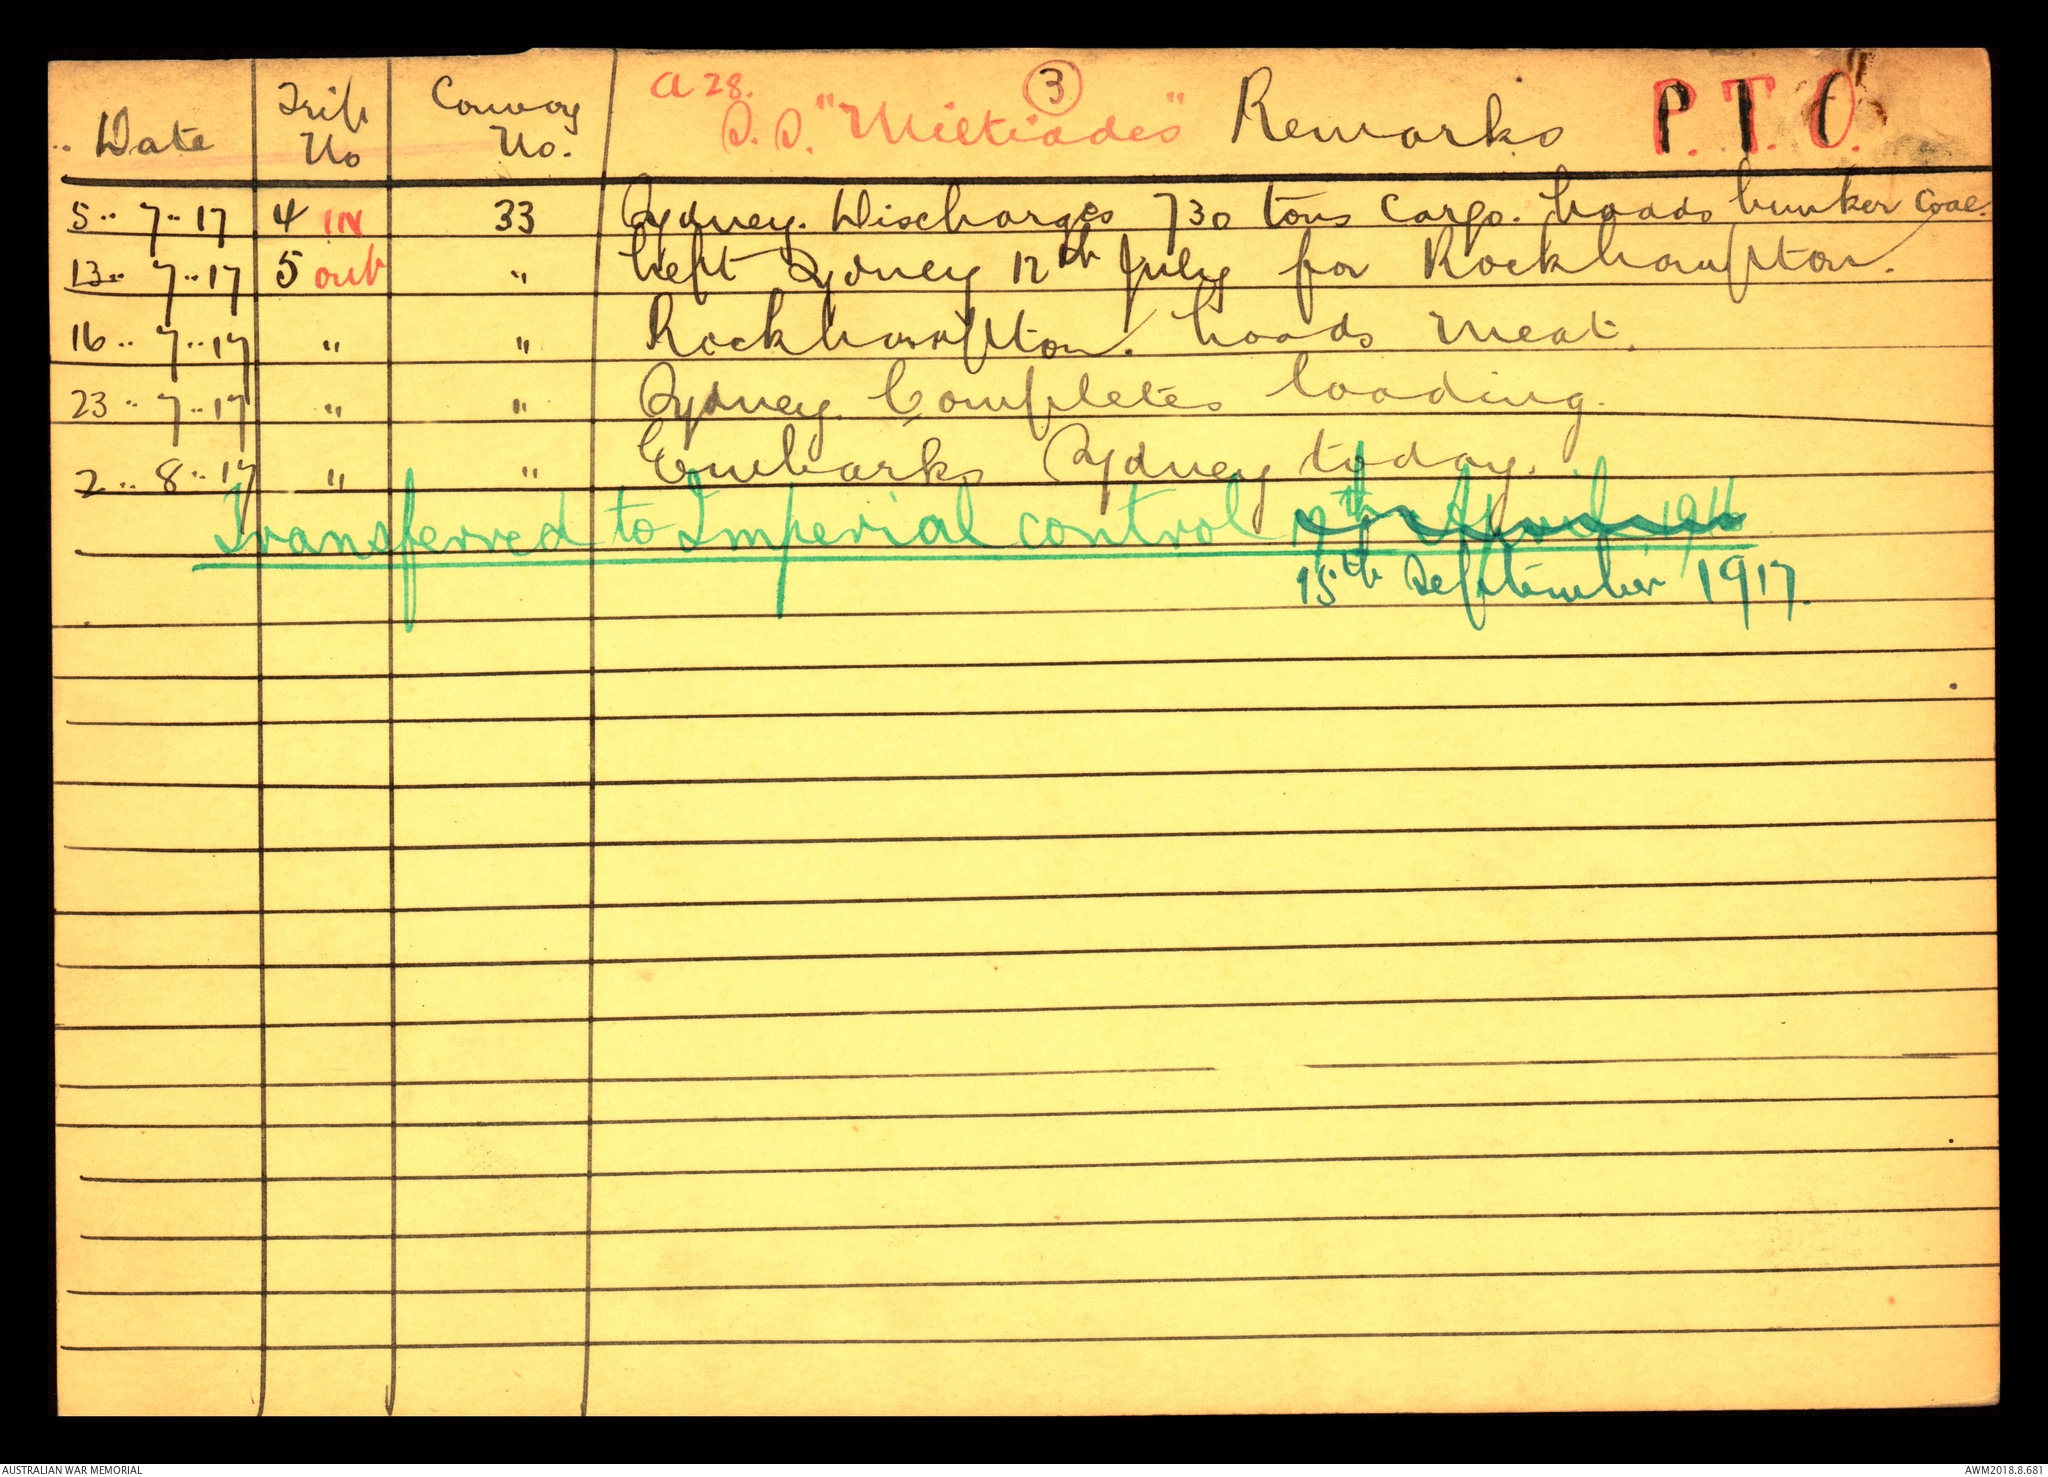 A 28. (3)
Date Trip No Convoy No. S.S. "Miltiades" Remarks P.T.O.
5.. 7.. 17 4 IN 33 Sydney. Discharges 730 tons cargo. Loads bunker coal.
13.. 7.. 17 5 out " Left Sydney 12th July for Rockhampton.
16.. 7.. 17 " " Rockhampton. Loads meat.
23.. 7.. 17 " " Sydney. Completes loading.
2.. 8.. 17 " " Embarks Sydney today.
Transferred to Imperial control
15th September 1917.
AUSTRALIAN WAR MEMORIAL AWM2018.8.681